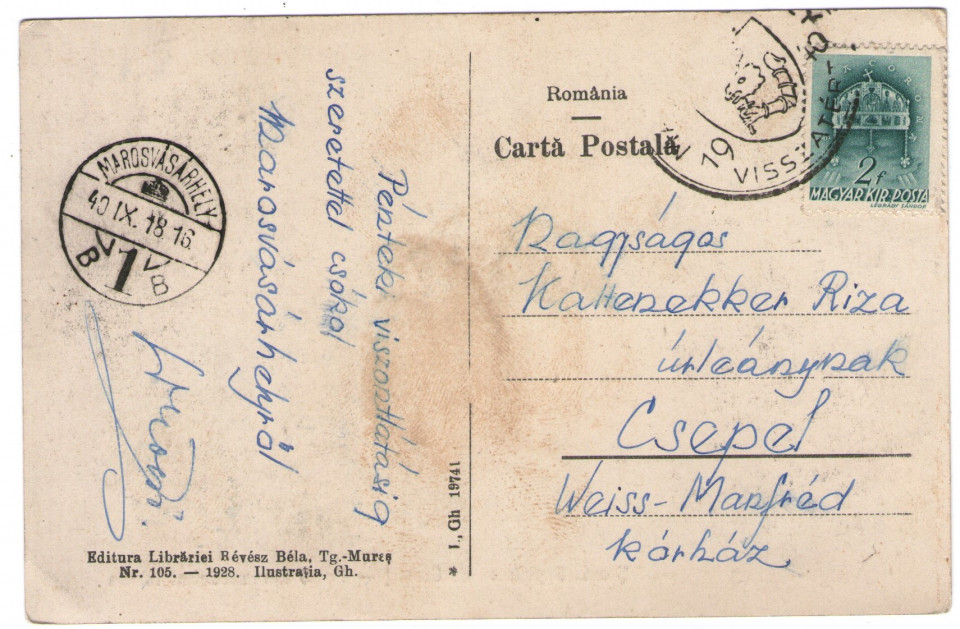 România
Cartă Postală
VISSZATÉRT
19
2f
MAGYAR KIR. POSTA
LÉGRÁDY SÁNDOR
MAROSVÁSÁRHELY
40 IX. 18. 16.
B 1 B
Pénteki viszontlátásig
szeretettel csókol
Marosvásárhelyről
Nagyságos
Kaltenekker Riza
úrleánynak
Csepel
Weiss-Manfréd
kórház
Editura Librăriei Révész Béla, Tg.-Mureș
Nr. 105. — 1928. Ilustrația, Gh.
* I., Gh 19741